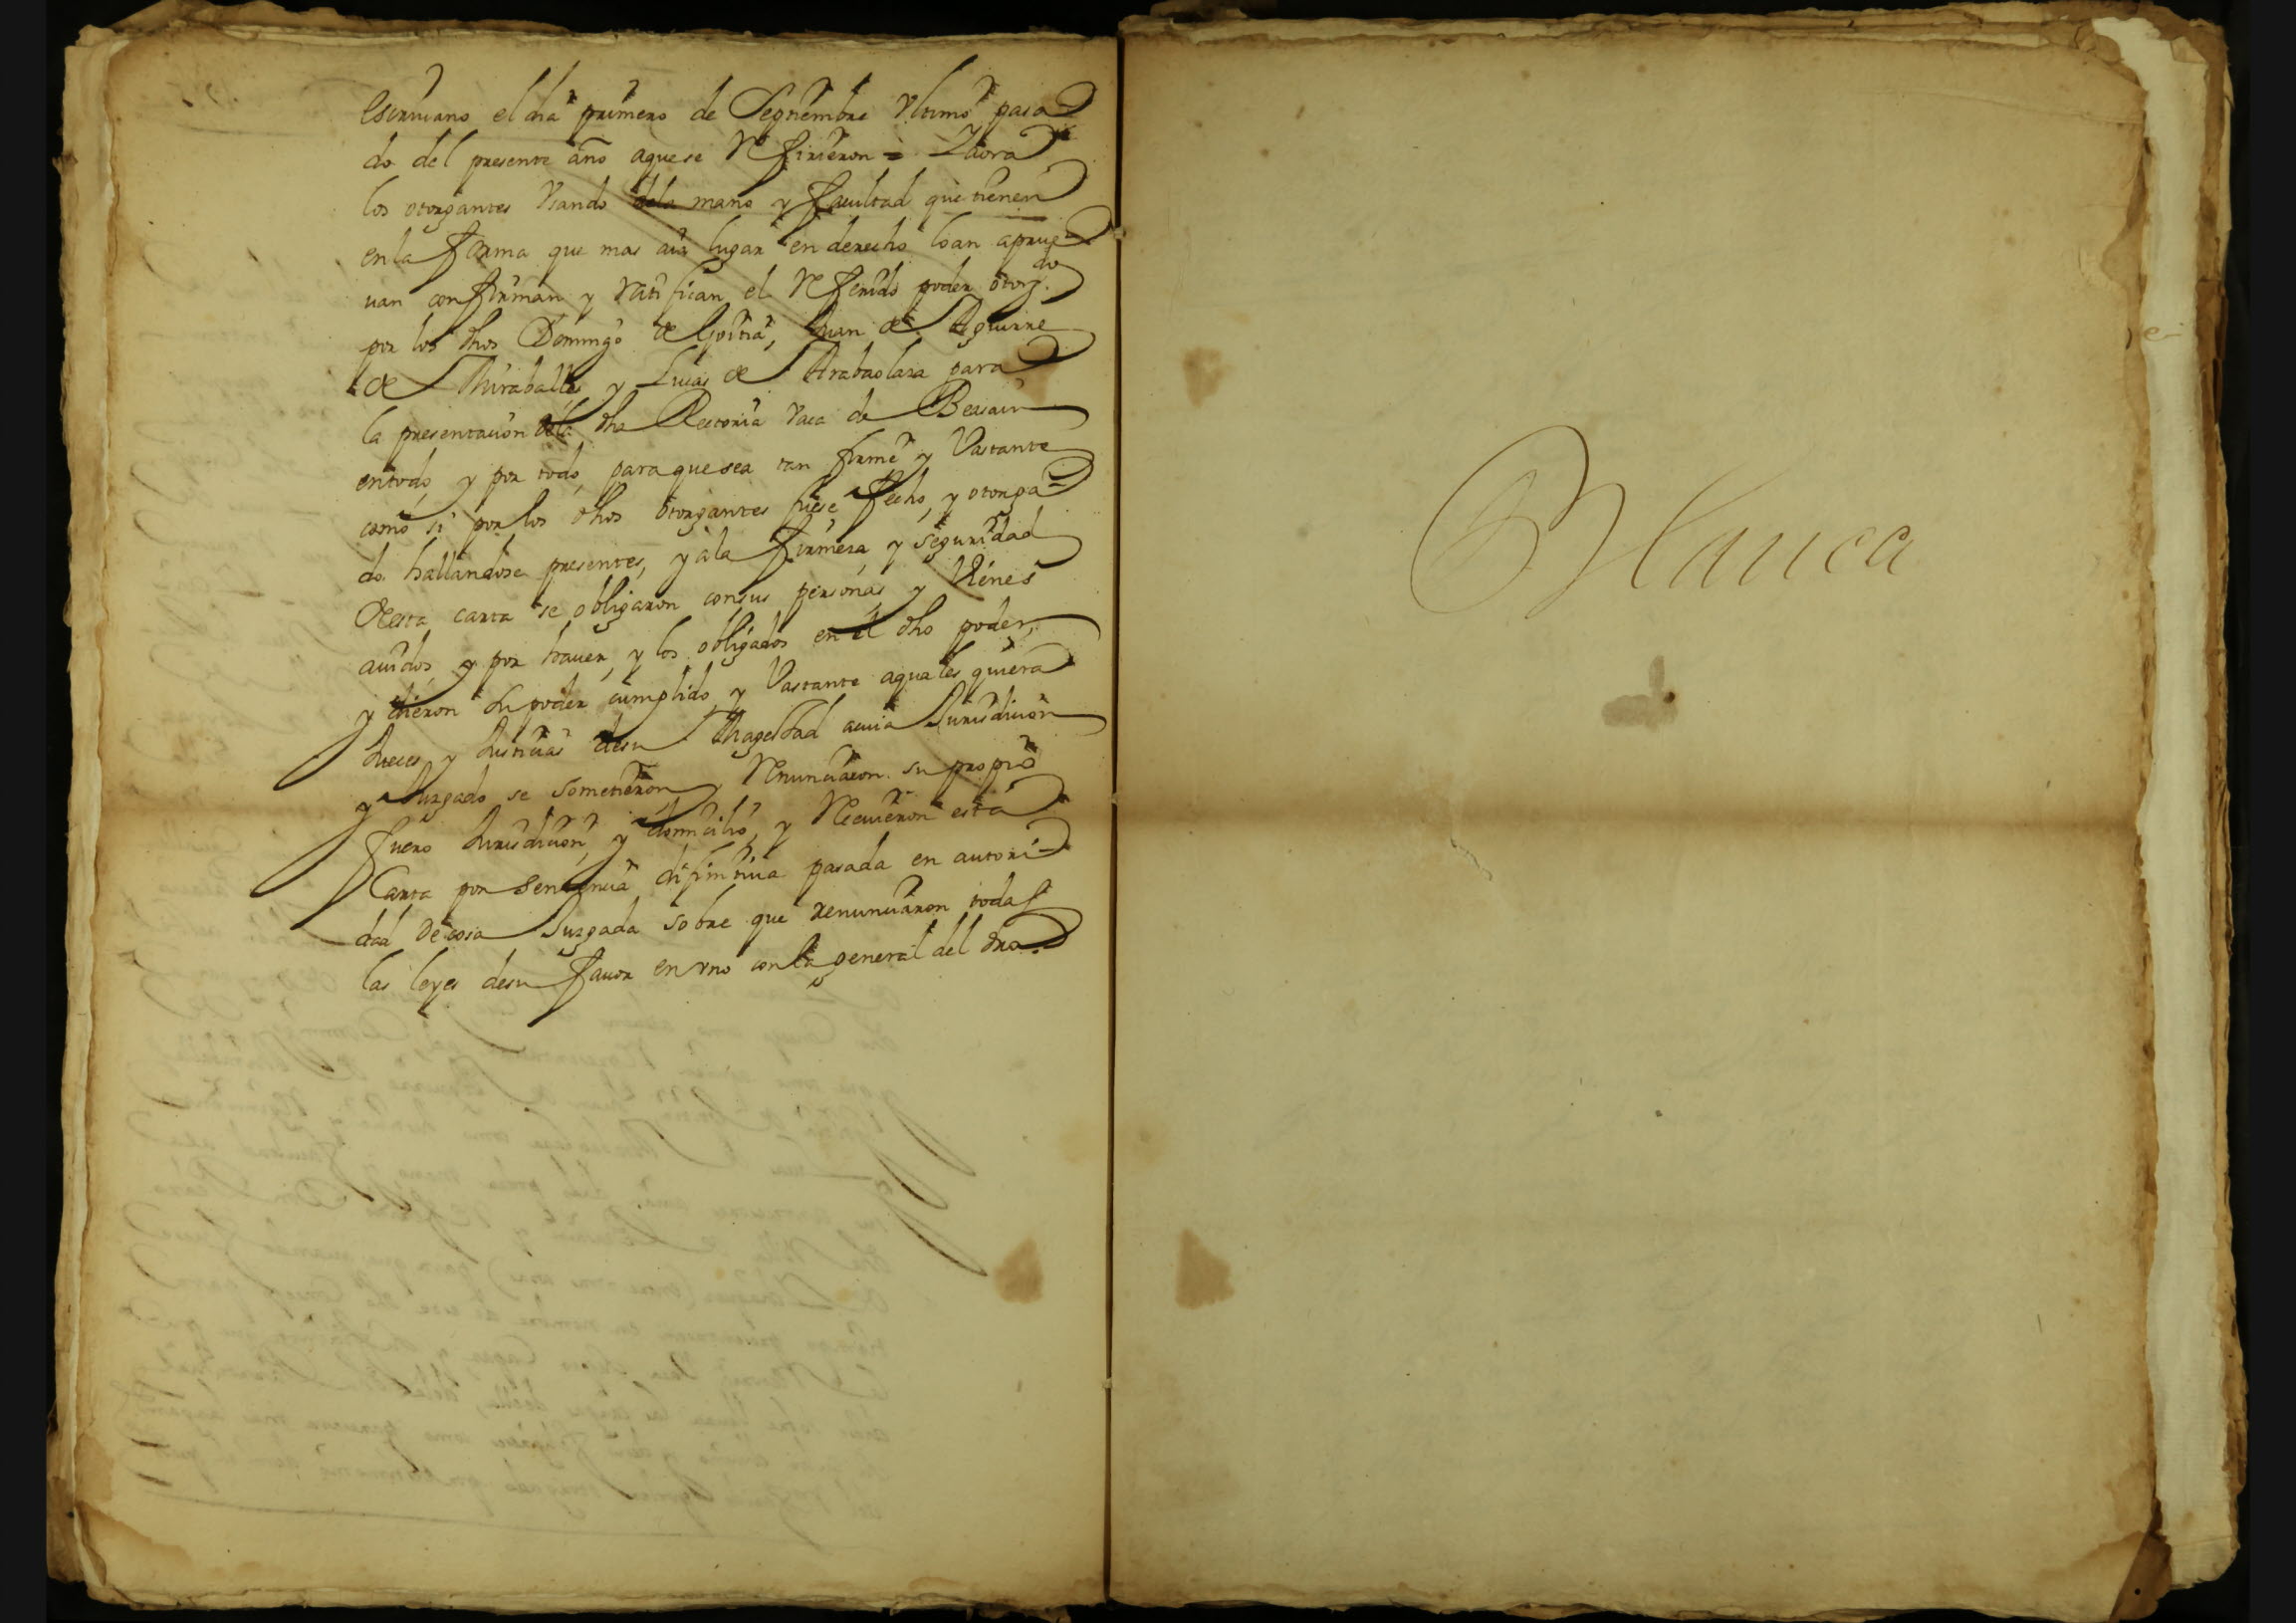 Escriuano el dia primero de Septiembre Vltimo pasa
do del presente año aquese Refirieron = Y aora
los otorgantes Vsando dela mano y facultad que tienen
en la forma que mas aia lugar en derecho loan aprue
uan confirman y Ratifican el Referido poder otorgdo
por los dhos Domingo de Goitia, Juan de Aguirre
de Miraballes y Lucas de Arabaolaza para
la presentacion dela dha Rectoria Vaca de Beasain
entodo y por todo, para que sea tan firme y Vastante
como si por los dhos otorgantes fuese fecho, y otorga
do hallandose presentes, y a la firmeza y seguridad
desta carta se obligaron consus personas y Vienes
auidos y por hauer, y los obligados en el dho poder,
y dieron su poder cumplido y Vastante aquales quiera
Jueces y Justicias desu Magestad acuia Jurisdicion
y Juzgado se sometieron y Renunciaron su propio
fuero Jurisdicion, y domicilio, y Reciuieron esta
Carta por sentencia difinitiua pasada en autori
dad de cosa Juzgada sobre que renunciaron todas
las leyes desu fauor en vno con la general del dro
Blanca